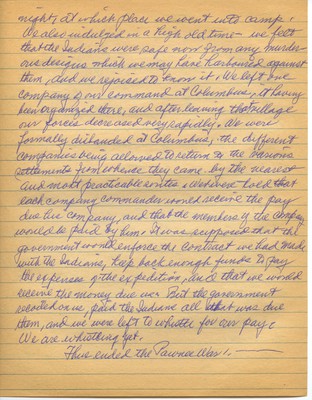 night, at which place we went into camp.
We also indulged in a high old time - we felt
that the Indians were safe now from any murder-
ous designs which we may have harboured against
them, and we rejoiced to know it. We left one
company of our command at Columbus, it having
been organized there, and after leaving that village
our forces decreased very rapidly. We were
formally disbanded at Columbus, the different
companies being allowed to return to the various
settlements from whence they came by the nearest
and most practicable routes. We were told that
each company commander would receive the pay
due his company, and that the members of the company
would be paid by him. It was supposed that the
government would enforce the contract we had made
with the Indians, keep back enough funds to pay
the expenses of the expedition, and that we would
receive the money due us. But the government
went back on us, paid the Indians all that was due
them, and we were left to whistle for our pay.
We are whistling yet.
Thus ended the Pawnee War!.